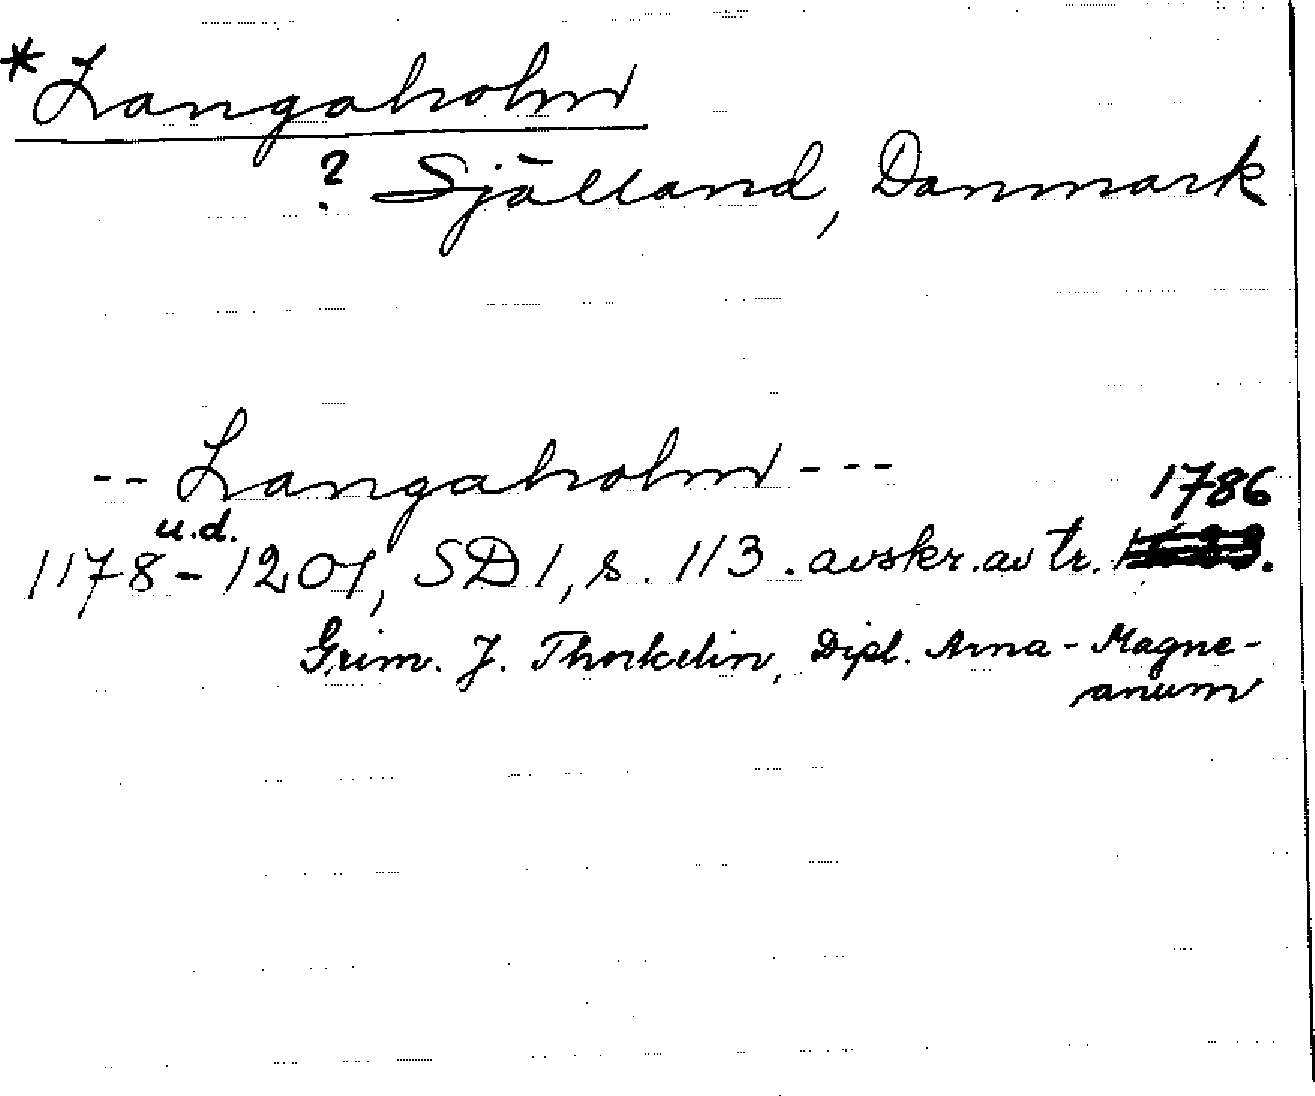 *Langaholm
? Själland, Danmark
-- Langaholm ---
1178 - 1201, u.d. SD 1, s. 113. avskr. av tr. 1786.
Grim. J. Thorkelin, Dipl. Arna-Magne-
anum